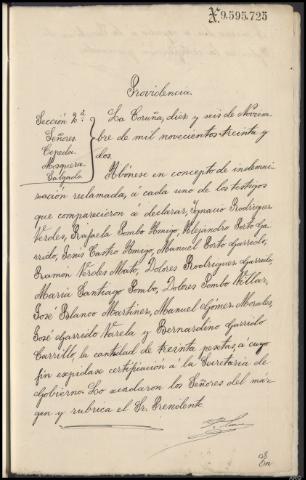 N.9.595.725
Providencia
Sección 2ª
Señores
Cepeda
Mosquera
Salgado
La Coruña, diez y seis de Noviem
bre de mil novecientos treinta y
dos.
Abónese en concepto de indemni-
zación reclamada, á cada uno de los testigos
que comparecieron a declarar, Ignacio Rodríguez
Verdes, Rafaela Pombo Amigo, Alejandro Porto Ga-
rrido, Jesús Castro Amigo, Manuel Porto Garrido,
Ramon Verdes Mato, Dolores Rodriguez Garrido,
María Santiago Pombo, Dolores Pombo Villar,
José Blanco Martínez, Manuel Gómez Morales,
José Garrido Varela y Bernardino Garrido
Carrillo, la cantidad de treinta pesetas, á cuyo
fin expidase certificación á la Secretaría de
Gobierno. Lo acordaron los Señores del már-
gen y rubrica el Sr. Presidente.